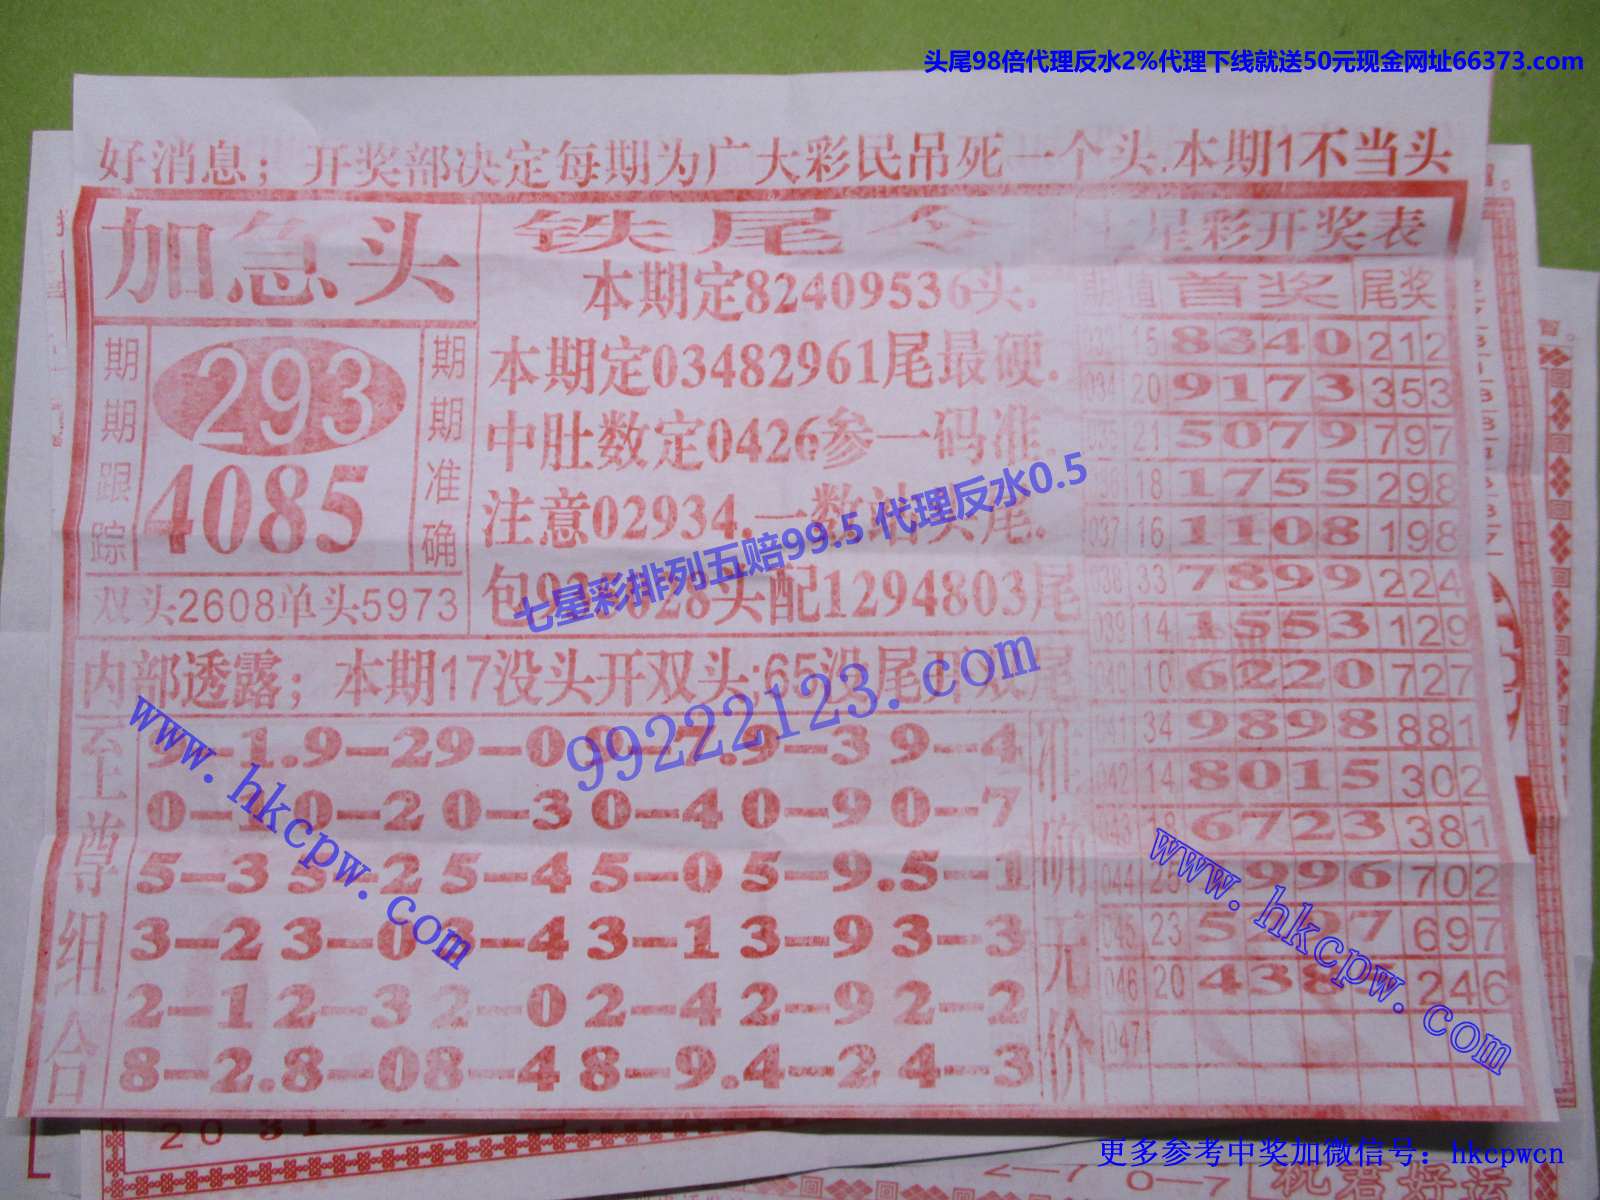 头尾98倍代理反水2%代理下线就送50元现金网址66373.com
好消息；开奖部决定每期为广大彩民吊死一个头.本期1不当头
加急头
期期跟踪
293
4085
期期准确
双头2608单头5973
铁尾令
本期定82409536头.
本期定03482961尾最硬.
中肚数定0426参一码准.
注意02934.一数
尾.
包
28头配1294803尾
七星彩排列五赔99.5 代理反水0.5
内部透露；本期17没头开双头:65没尾开双尾
99222123.com
www.hkcpw.com
至上尊组合
9-4
0-2 0-3 0-4 0-9 0-7
5-3 5-2 5-4 5-0 5-9.5-1
3-2 3-0 3-4 3-1 3-9 3-3
2-1 2-3 2-0 2-4 2-9 2-2
8-2.8-0 8-4 8-9.4-2 4-3
准确无价
七星彩开奖表
期 值 首奖 尾奖
15 8340 212
034 20 9173 353
035 21 5079 797
036 18 1755 298
037 16 1108 198
33 7899 224
039 14 1553 129
040 10 6220 727
041 34 9898 881
042 14 8015 302
043 18 6723 381
044 996 702
045 23 697
046 20 438 246
047
www.hkcpw.com
20
更多参考中奖加微信号：hkcpwcn
0—7
祝君好运